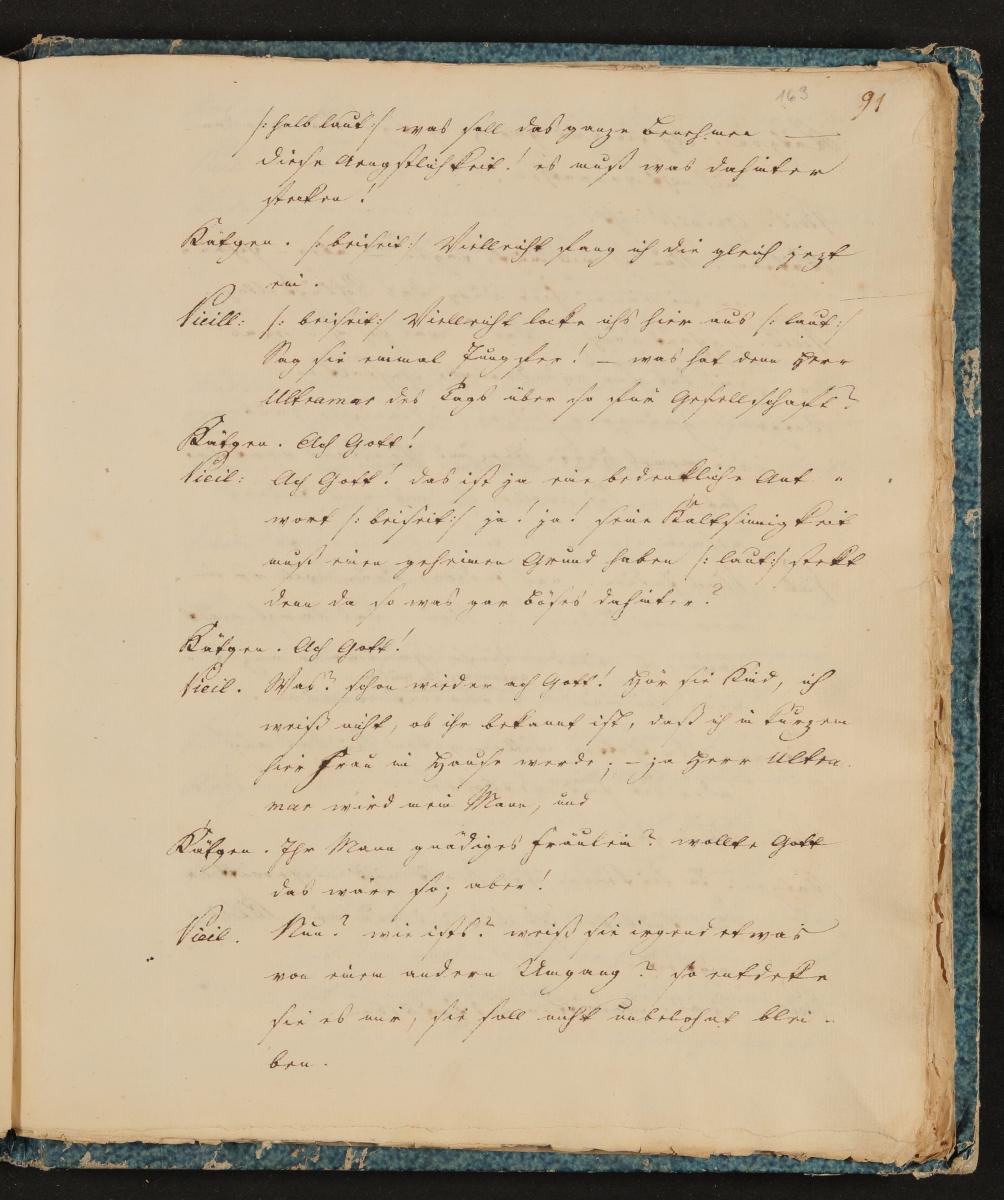 163
91
/: halb laut :/ was soll das ganze Benehmen —
diese Aengstlichkeit! es muß was dahinter
stecken!
Kätgen. /: beiseit :/ Vielleicht fang ich die gleich jezt
ein.
Vieill: /: beiseit :/ Vielleicht locke ichs hier aus /: laut :/
Sag sie einmal Jungfer! — was hat denn Herr
Ultramar des Tags über so für Gesellschaft?
Kätgen. Ach Gott!
Vieil: Ach Gott! das ist ja eine bedenkliche Ant =
wort /: beiseit :/ ja! ja! seine Kaltsinnigkeit
muß einen geheimen Grund haben /: laut :/ stekt
denn da so was gar Böses dahinter?
Kätgen. Ach Gott!
Vieil. Was? schon wieder ach Gott! Hör sie Kind, ich
weiß nicht, ob ihr bekannt ist, daß ich in kurzem
hier Frau im Hause werde; — ja Herr Ultra-
mar wird mein Mann, und
Kätgen. Ihr Mann gnädiges Fräulein? wollte Gott
das wäre so; aber!
Vieil. Nun? wie ists? weiß sie irgend etwas
von einem andern Umgang? so entdeke
sie es mir, sie soll nicht unbelohnt blei-
ben.